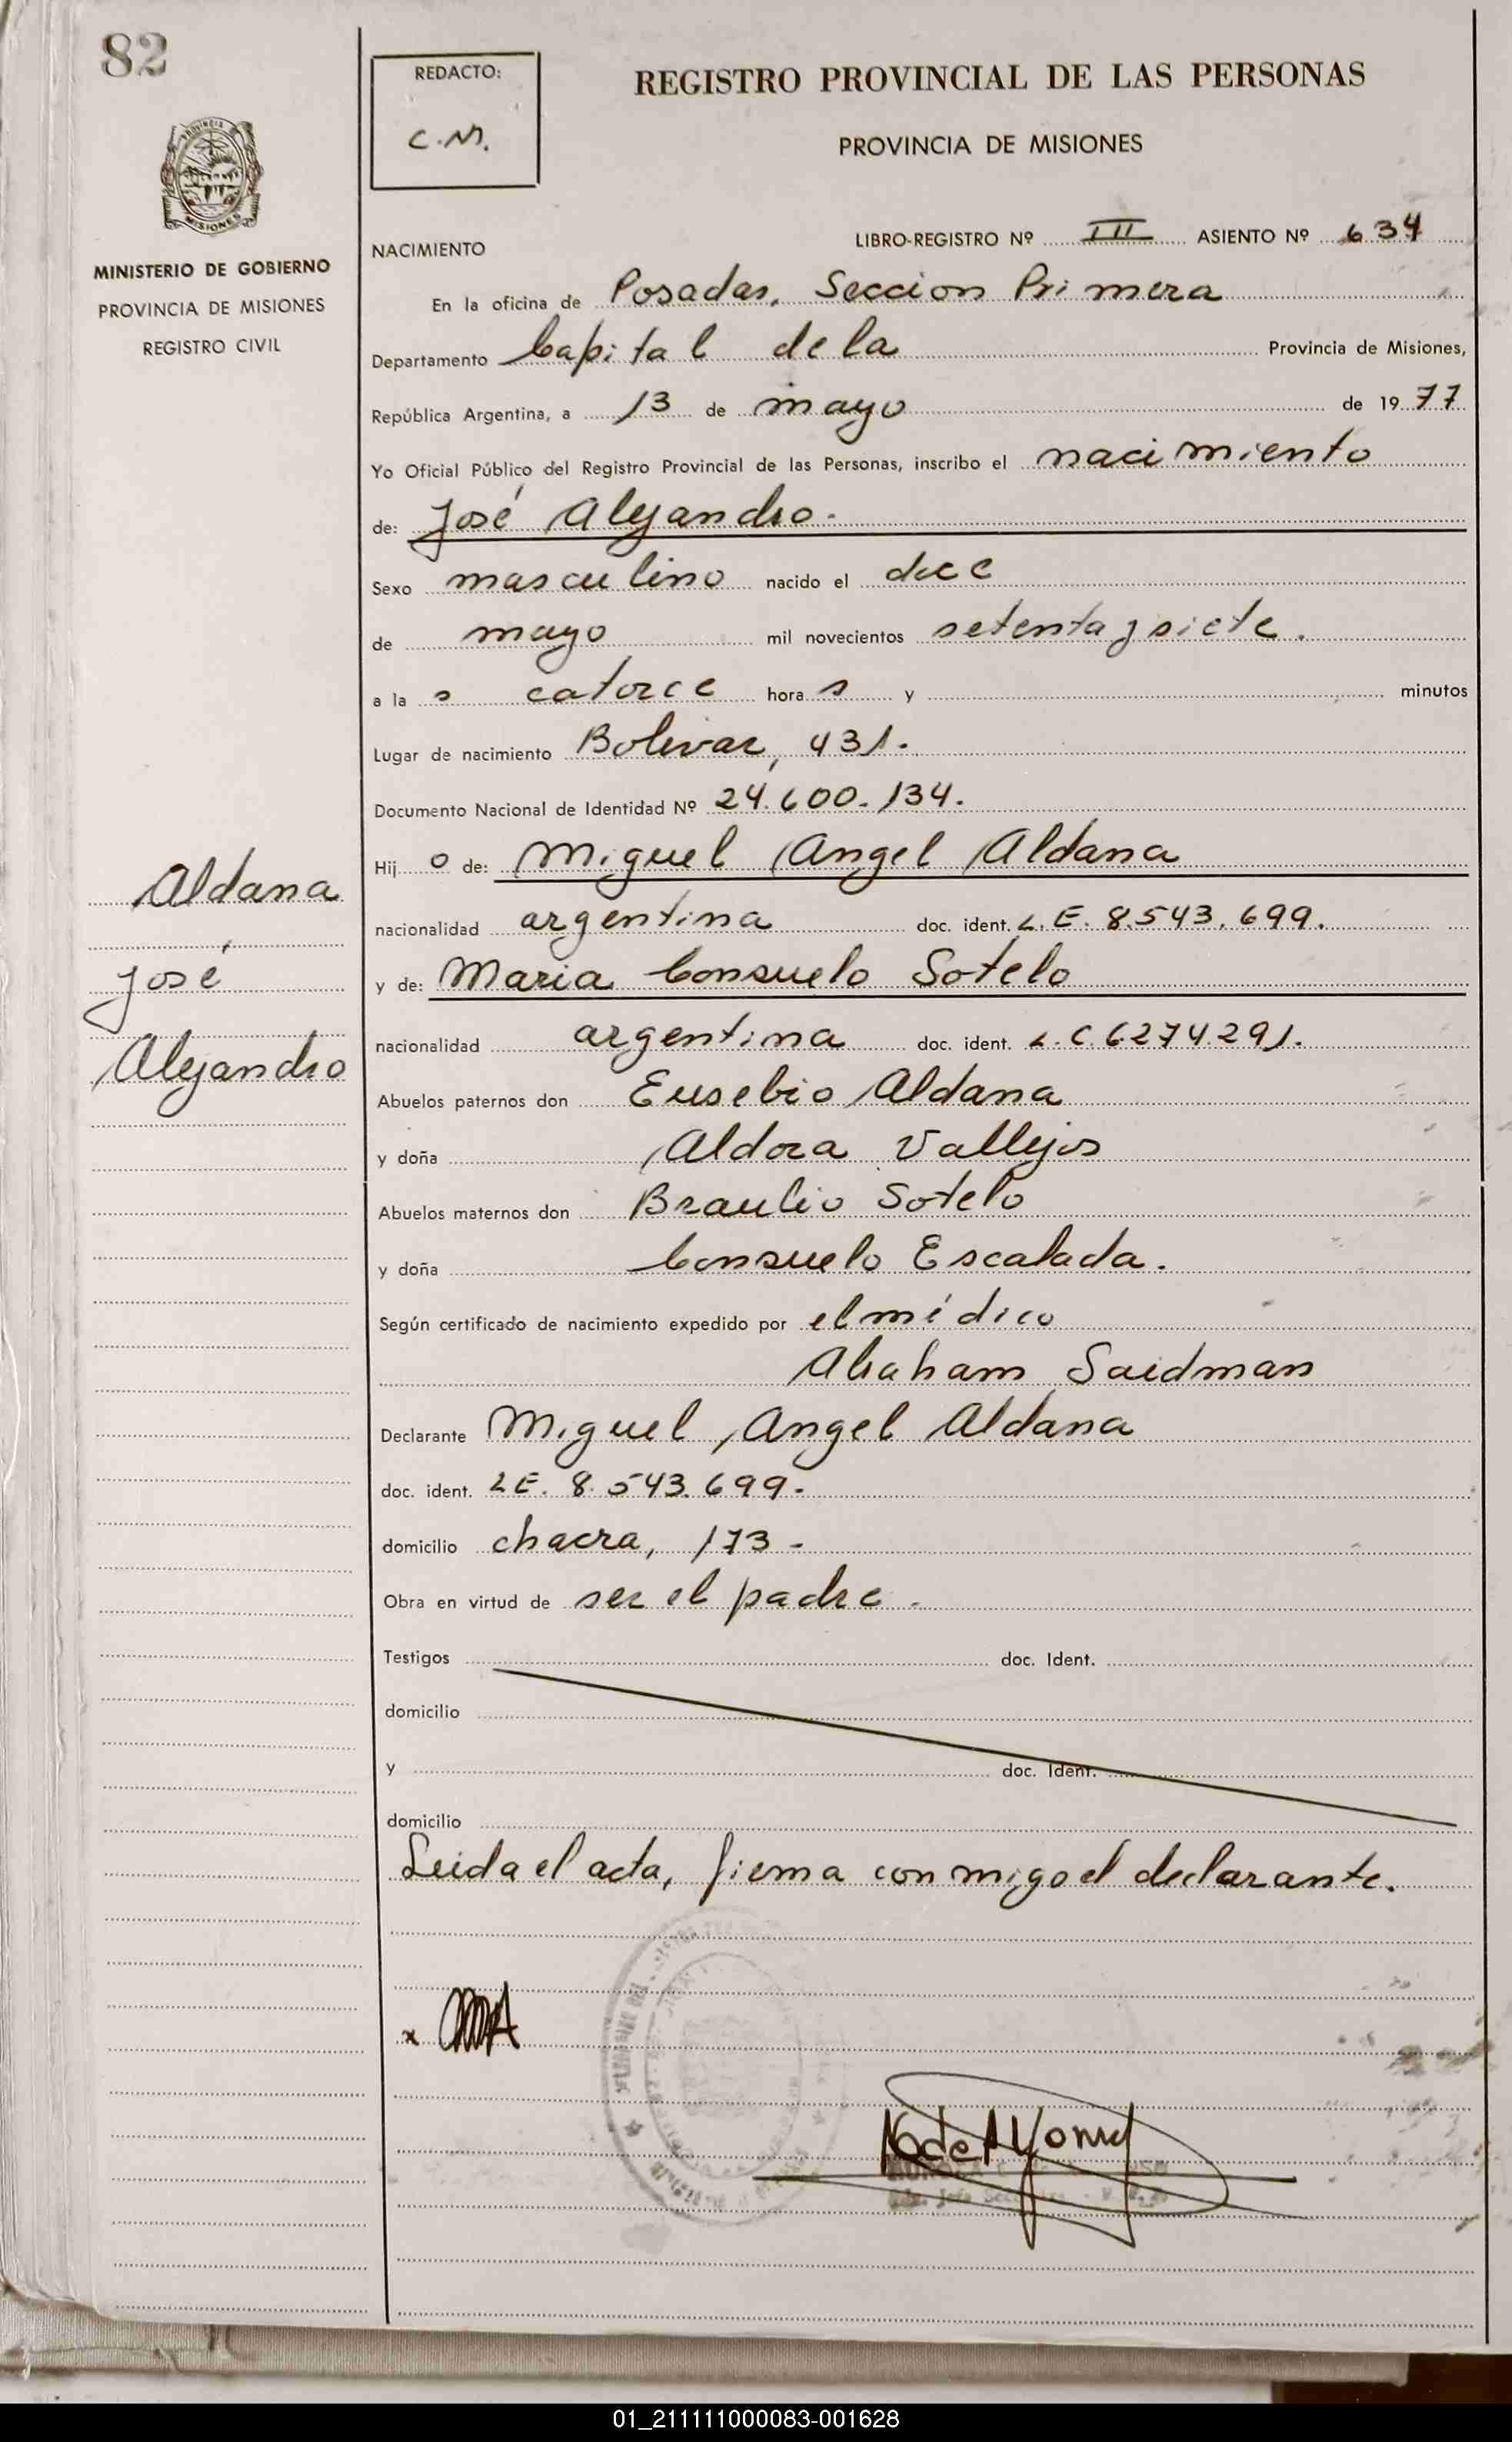 82
REDACTO:
C.M.
REGISTRO PROVINCIAL DE LAS PERSONAS
PROVINCIA DE MISIONES
MISIONES
MINISTERIO DE GOBIERNO
PROVINCIA DE MISIONES
REGISTRO CIVIL
LIBRO-REGISTRO Nº III ASIENTO Nº 634
NACIMIENTO
En la oficina de Posadas, Seccion Primera
Departamento Capital de la Provincia de Misiones,
República Argentina, a 13 de mayo de 1977
Yo Oficial Público del Registro Provincial de las Personas, inscribo el nacimiento
de: José Alejandro.
Sexo masculino nacido el doce
de mayo mil novecientos setenta y siete.
a la s catorce hora s y minutos
Lugar de nacimiento Bolivar, 431.
Documento Nacional de Identidad Nº 24.600.134.
Hij o de: Miguel Angel Aldana
Aldana
nacionalidad argentina doc. ident. L.E. 8.543.699.
y de: Maria Consuelo Sotelo
José
nacionalidad argentina doc. ident. L.C. 6274291.
Alejandro
Abuelos paternos don Eusebio Aldana
y doña Aldora Vallejos
Abuelos maternos don Braulio Sotelo
y doña Consuelo Escalada.
Según certificado de nacimiento expedido por el médico
Abraham Saidman
Declarante Miguel Angel Aldana
doc. ident. LE. 8.543.699-
domicilio chacra, 173-
Obra en virtud de ser el padre.
Testigos doc. Ident.
domicilio
y doc. Ident.
domicilio
Leida el acta, firma conmigo el declarante.
x
01_211111000083-001628